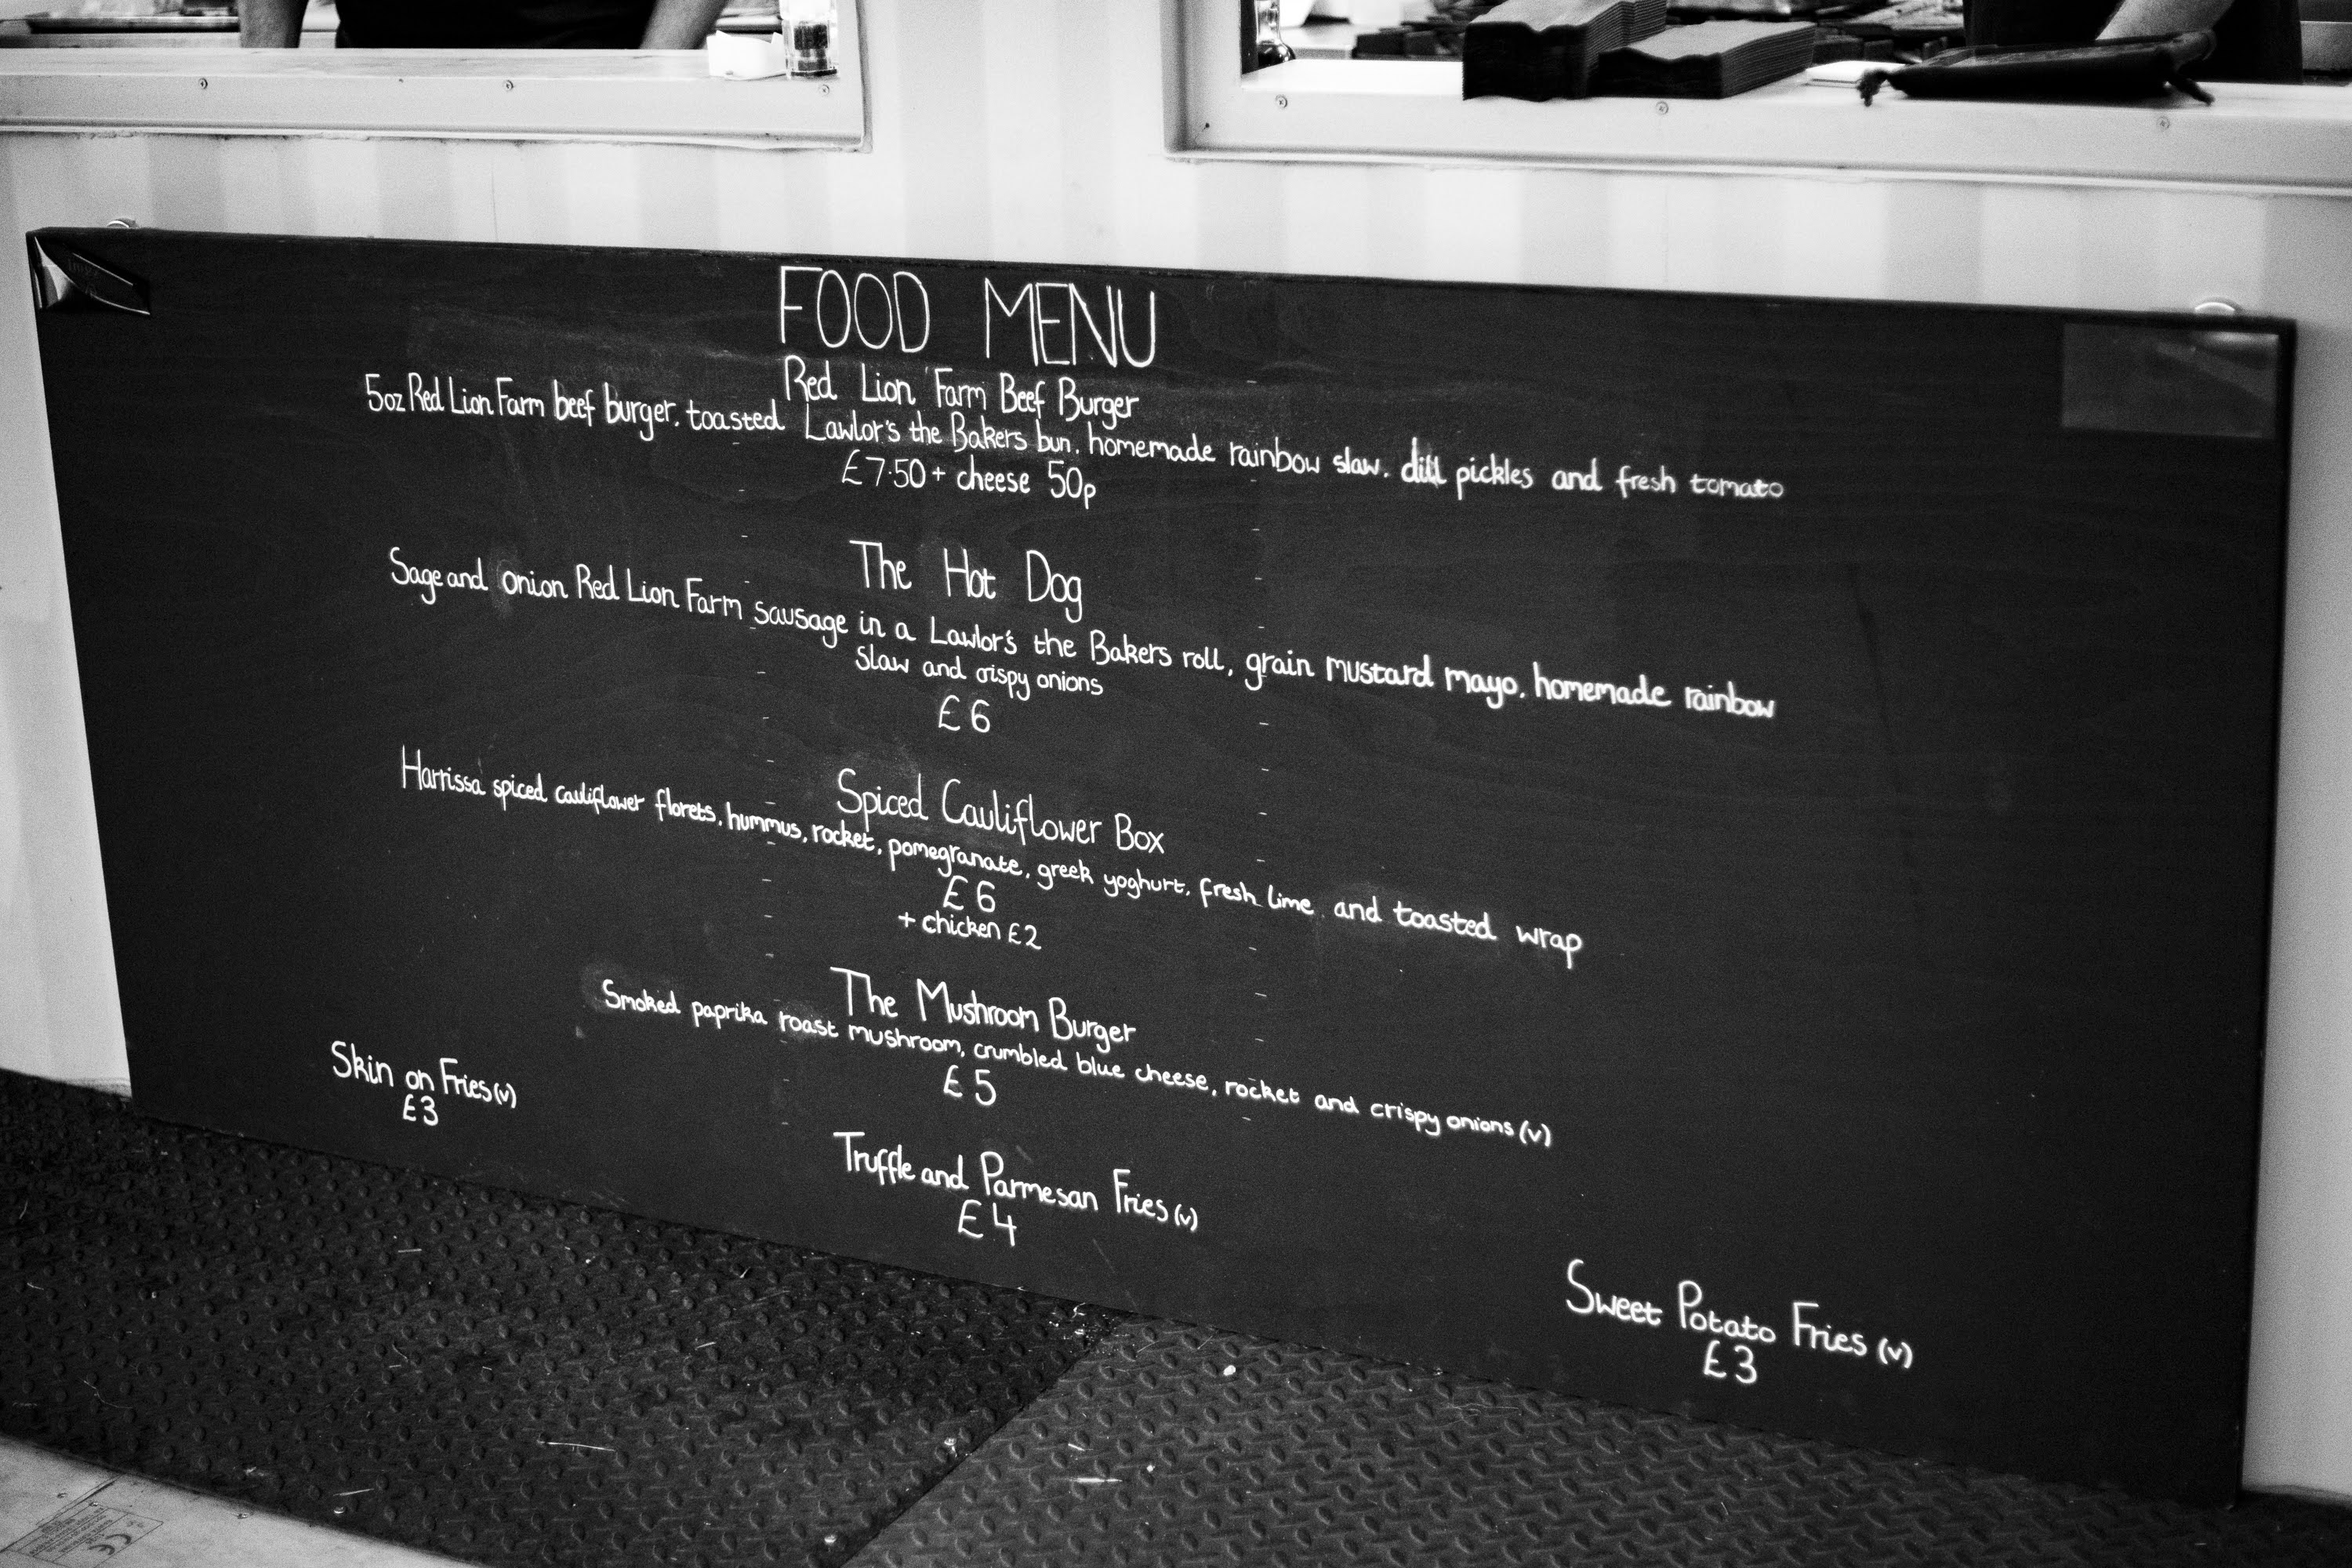 FOOD MENU
Red Lion Farm Beef Burger
5oz Red Lion Farm beef burger, toasted Lawlor's the Bakers bun, homemade rainbow slaw, dill pickles and fresh tomato
£7.50 + cheese 50p
The Hot Dog
Sage and onion Red Lion Farm sausage in a Lawlor's the Bakers roll, grain mustard mayo, homemade rainbow
slaw and crispy onions
£6
Spiced Cauliflower Box
Harrissa spiced cauliflower florets, hummus, rocket, pomegranate, greek yoghurt, fresh lime and toasted wrap
£6
+ chicken £2
The Mushroom Burger
Smoked paprika roast mushroom, crumbled blue cheese, rocket and crispy onions (v)
£5
Skin on Fries (v)
£3
Truffle and Parmesan Fries (v)
£4
Sweet Potato Fries (v)
£3
CE